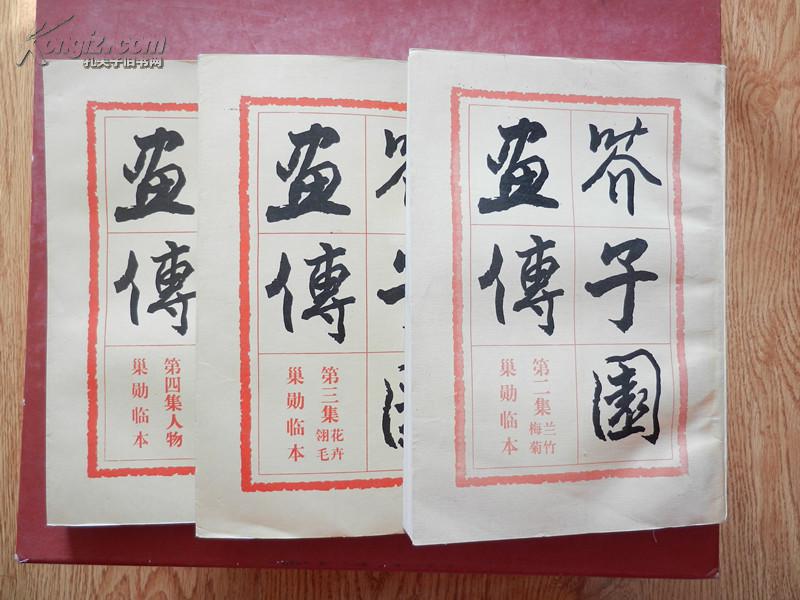 Kongfz.com
孔夫子旧书网
芥子園
畫傳
第二集 兰竹梅菊
巢勋临本
芥子園
畫傳
第三集 花卉翎毛
巢勋临本
畫傳
第四集人物
巢勋临本